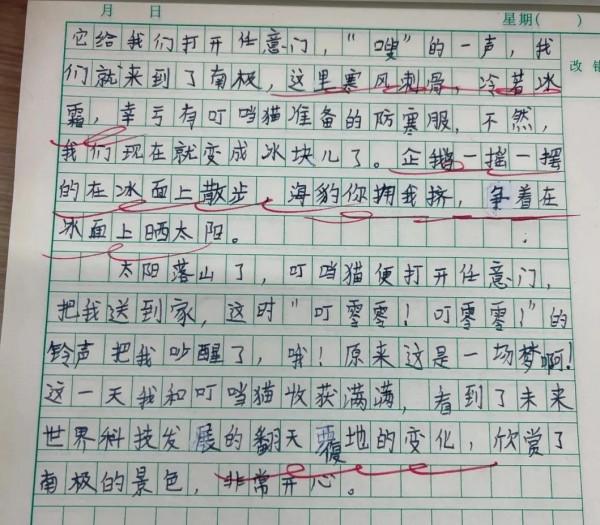 月 日 星期( )
它给我们打开任意门，“嗖”的一声，我
改错
们就来到了南极，这里寒风刺骨，冷若冰
霜，幸亏有叮当猫准备的防寒服，不然，
我们现在就变成冰块儿了。企鹅一摇一摆
的在冰面上散步，海豹你拥我挤，争着在
冰面上晒太阳。
太阳落山了，叮当猫便打开任意门，
把我送到家，这时“叮零零！叮零零！”的
铃声把我吵醒了，哦！原来这是一场梦啊！
这一天我和叮当猫收获满满，看到了未来
世界科技发展的翻天覆地的变化，欣赏了
南极的景色，非常开心。